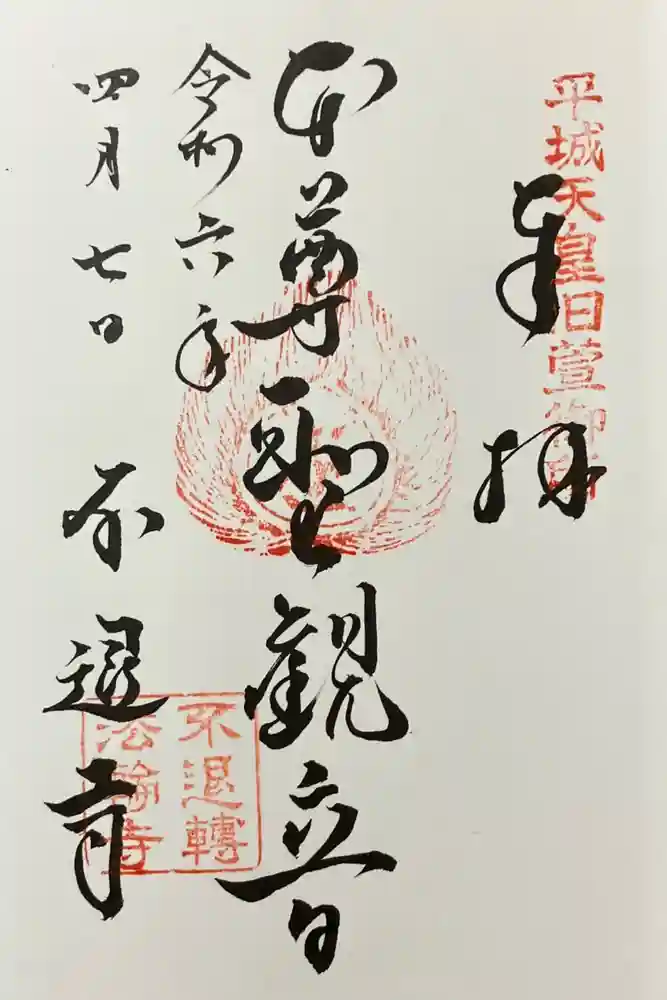 平城天皇旧萱御所
奉拝
本尊聖観音
令和六年
四月七日 不退寺
不退轉
法輪寺